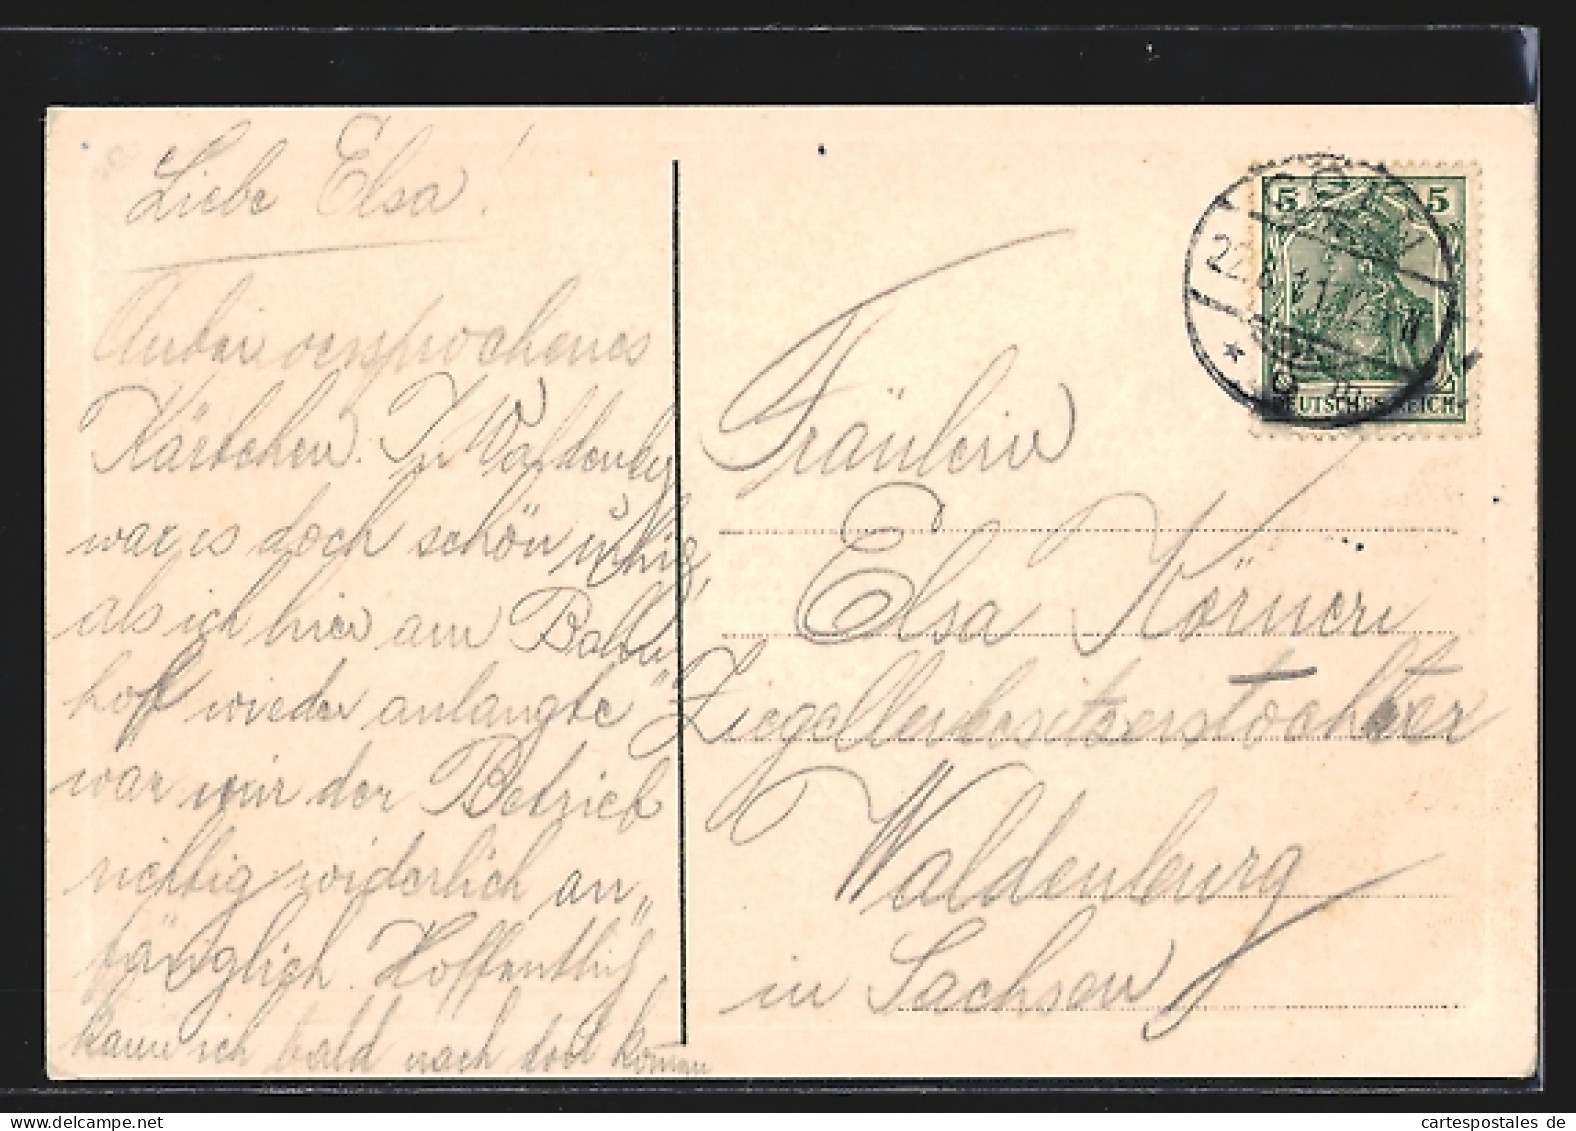 Liebe Elsa!
Anbei versprochenes
Kärtchen. In Waldenbg
war es doch schön ruhig,
als ich hier am Bahn„
hof wieder anlangte
war mir der Betrieb
richtig widerlich an„
fänglich. Hoffentlich
kann ich bald nach dort kommen
5 5
22.6. 11
DEUTSCHES REICH
Fräulein
Elsa Körner
Ziegeleibesitzerstochter
Waldenburg
in Sachsen
cartespostales de